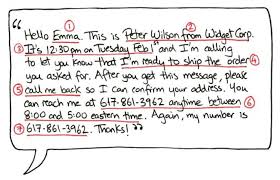 ① ②
"Hello Emma. This is Peter Wilson from Widget Corp.
③ It's 12:30pm on Tuesday Feb 1st and I'm calling
to let you know that I'm ready to ship the order ④
you asked for. After you get this message, please
⑤ call me back so I can confirm your address. You
can reach me at 617-861-3962 anytime between ⑥
8:00 and 5:00 eastern time. Again, my number is
⑦ 617-861-3962. Thanks! "